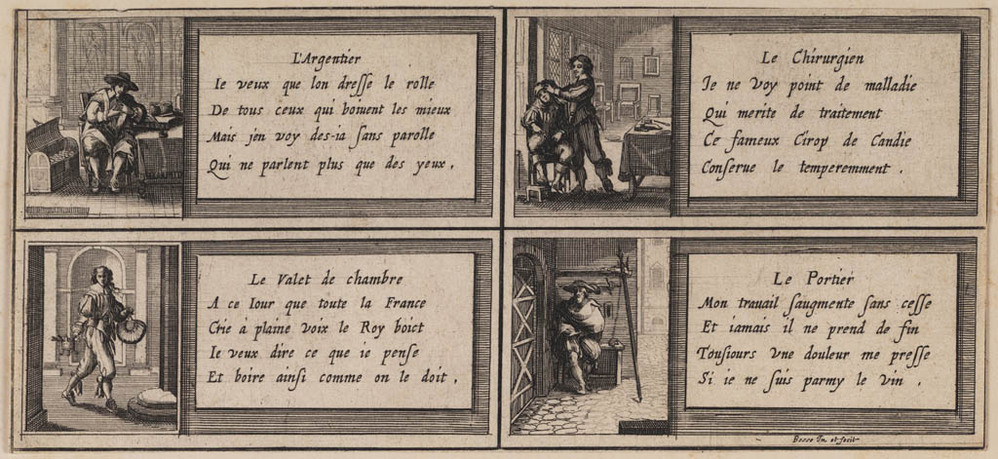 L'Argentier
Ie veux que lon dreſſe le rolle
De tous ceux qui boiuent les mieux
Mais j'en voy des-ia ſans parolle
Qui ne parlent plus que des yeux.
Le Chirurgien
Je ne voy point de malladie
Qui merite de traitement
Ce fameux Cirop de Candie
Conſerue le temperemment.
Le Valet de chambre
A ce Iour que toute la France
Crie à plaine voix le Roy boict
Ie veux dire ce que ie penſe
Et boire ainſi comme on le doit.
Le Portier
Mon trauail ſaugmente ſans ceſſe
Et iamais il ne prend de fin
Touſiours vne douleur me preſſe
Si ie ne ſuis parmy le vin.
Boſſe In et fecit